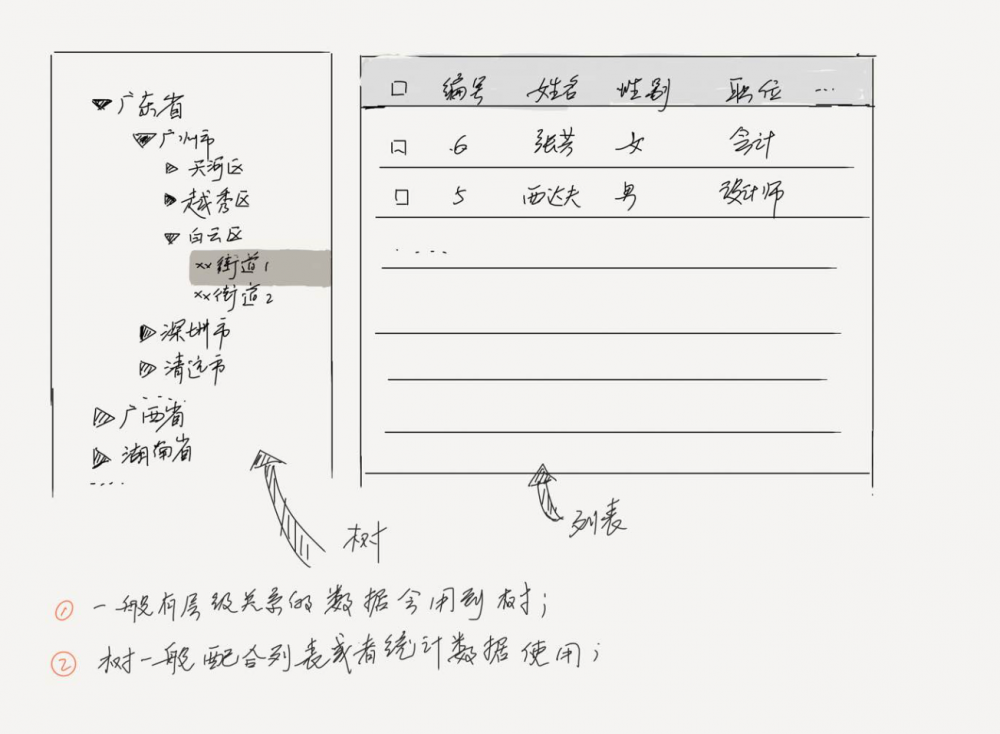 广东省
广州市
天河区
越秀区
白云区
xx街道1
xx街道2
深圳市
清远市
....
广西省
湖南省
....
编号 姓名 性别 职位 ...
6 张芸 女 会计
5 西达夫 男 设计师
....
树
列表
① 一般有层级关系的数据会用到树;
② 树一般配合列表或者统计数据使用;